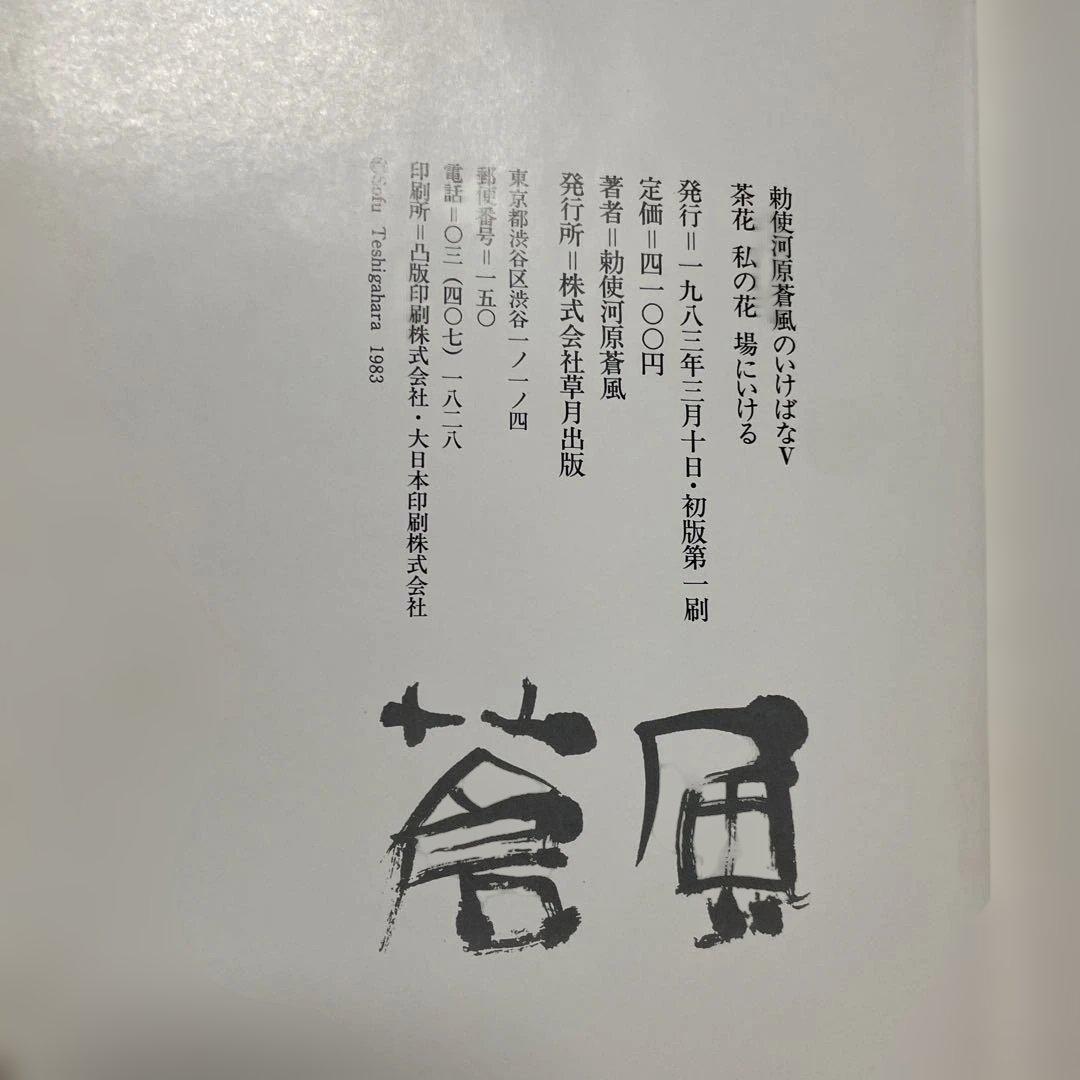 勅使河原蒼風のいけばなⅤ
茶花 私の花 場にいける
発行＝一九八三年三月十日・初版第一刷
定価＝四一〇〇円
著者＝勅使河原蒼風
発行所＝株式会社草月出版
東京都渋谷区渋谷一ノ一ノ四
郵便番号＝一五〇
電話＝〇三(四〇七)一八二八
印刷所＝凸版印刷株式会社・大日本印刷株式会社
©Sofu Teshigahara 1983
蒼風